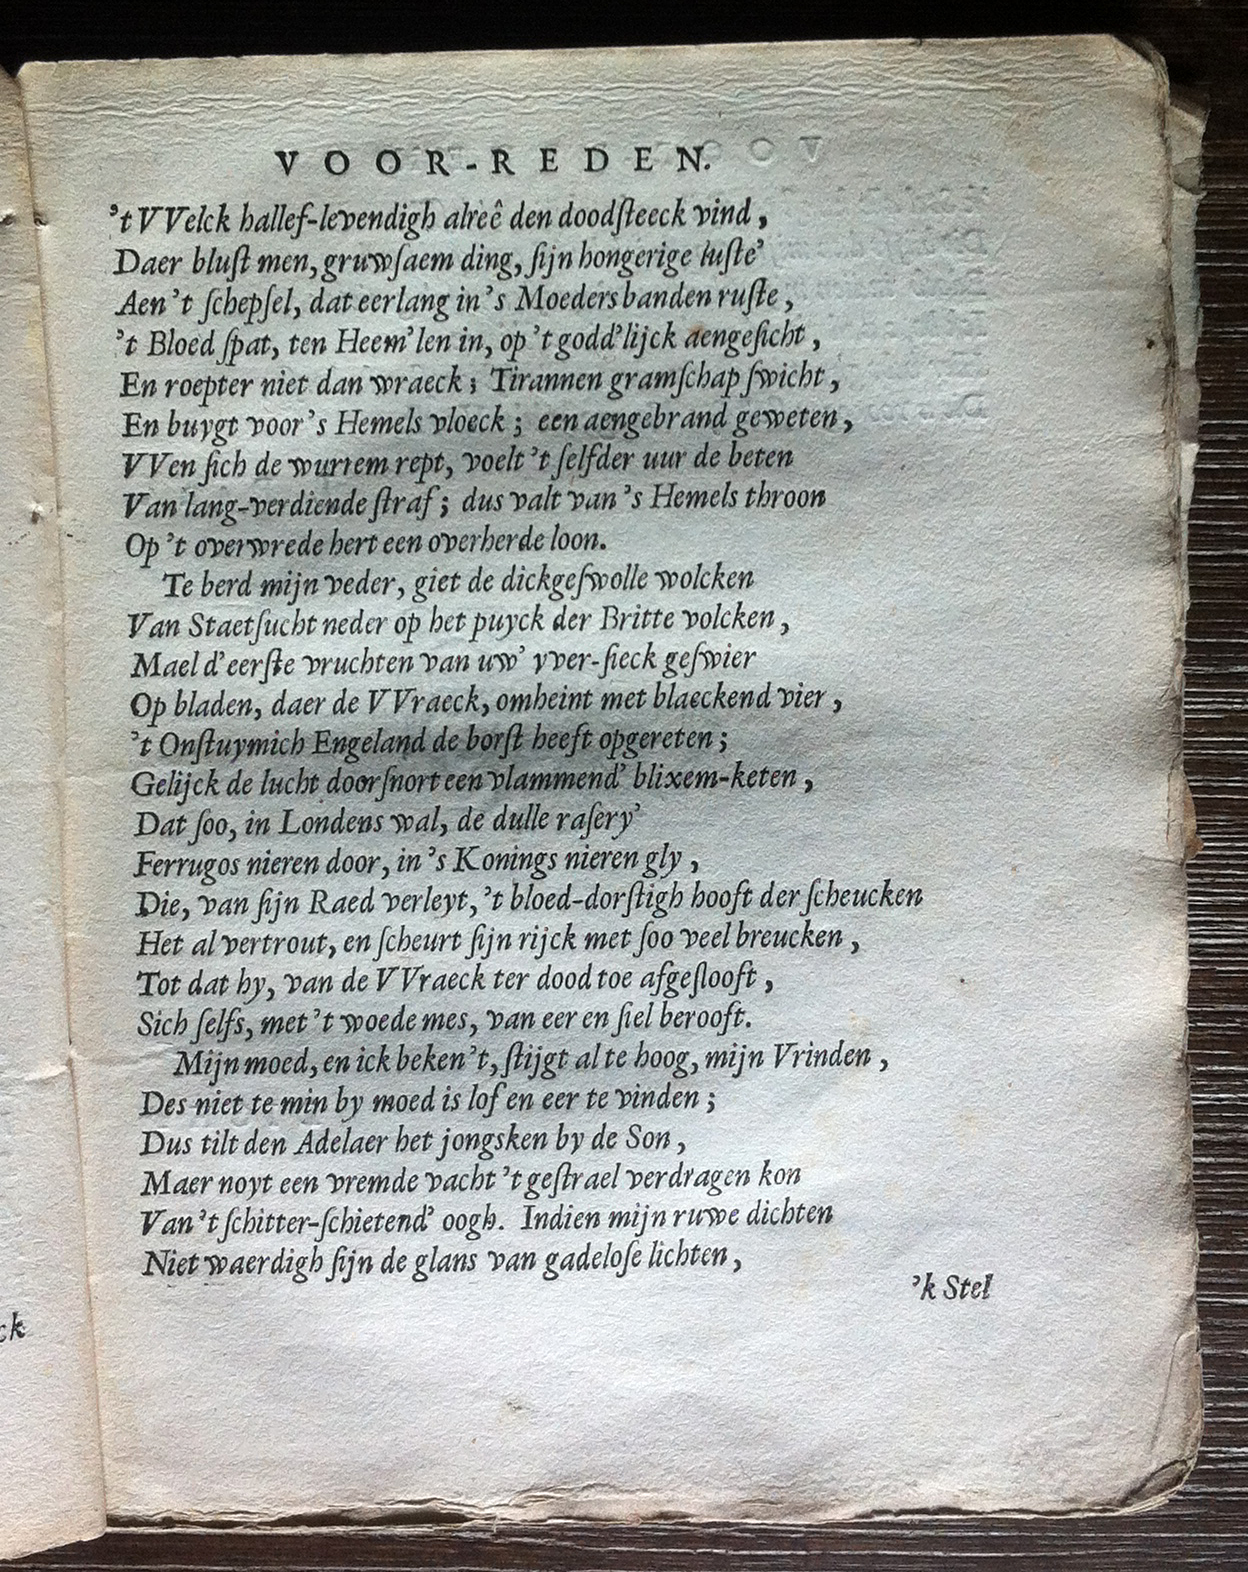 VOOR-REDEN.
't VVelck hallef-levendigh alreê den doodſteeck vind,
Daer bluſt men, gruwſaem ding, ſijn hongerige luſte'
Aen 't ſchepſel, dat eerlang in 's Moeders banden ruſte,
't Bloed ſpat, ten Heem'len in, op 't godd'lijck aengeſicht,
En roepter niet dan wraeck; Tirannen gramſchap ſwicht,
En buygt voor 's Hemels vloeck; een aengebrand geweten,
VVen ſich de wurrem rept, voelt 't ſelfder uur de beten
Van lang-verdiende ſtraf; dus valt van 's Hemels throon
Op 't overwrede hert een overherde loon.
Te berd mijn veder, giet de dickgeſwolle wolcken
Van Staetſucht neder op het puyck der Britte volcken,
Mael d'eerſte vruchten van uw' yver-ſieck geſwier
Op bladen, daer de VVraeck, omheint met blaeckend vier,
't Onſtuymich Engeland de borſt heeft opgereten;
Gelijck de lucht doorſnort een vlammend' blixem-keten,
Dat ſoo, in Londens wal, de dulle raſery'
Ferrugos nieren door, in 's Konings nieren gly,
Die, van ſijn Raed verleyt, 't bloed-dorſtigh hooft der ſcheucken
Het al vertrout, en ſcheurt ſijn rijck met ſoo veel breucken,
Tot dat hy, van de VVraeck ter dood toe afgeſlooft,
Sich ſelfs, met 't woede mes, van eer en ſiel berooft.
Mijn moed, en ick beken't, ſtijgt al te hoog, mijn Vrinden,
Des niet te min by moed is lof en eer te vinden;
Dus tilt den Adelaer het jongsken by de Son,
Maer noyt een vremde vacht 't geſtrael verdragen kon
Van 't ſchitter-ſchietend' oogh. Indien mijn ruwe dichten
Niet waerdigh ſijn de glans van gadeloſe lichten,
'k Stel
ck